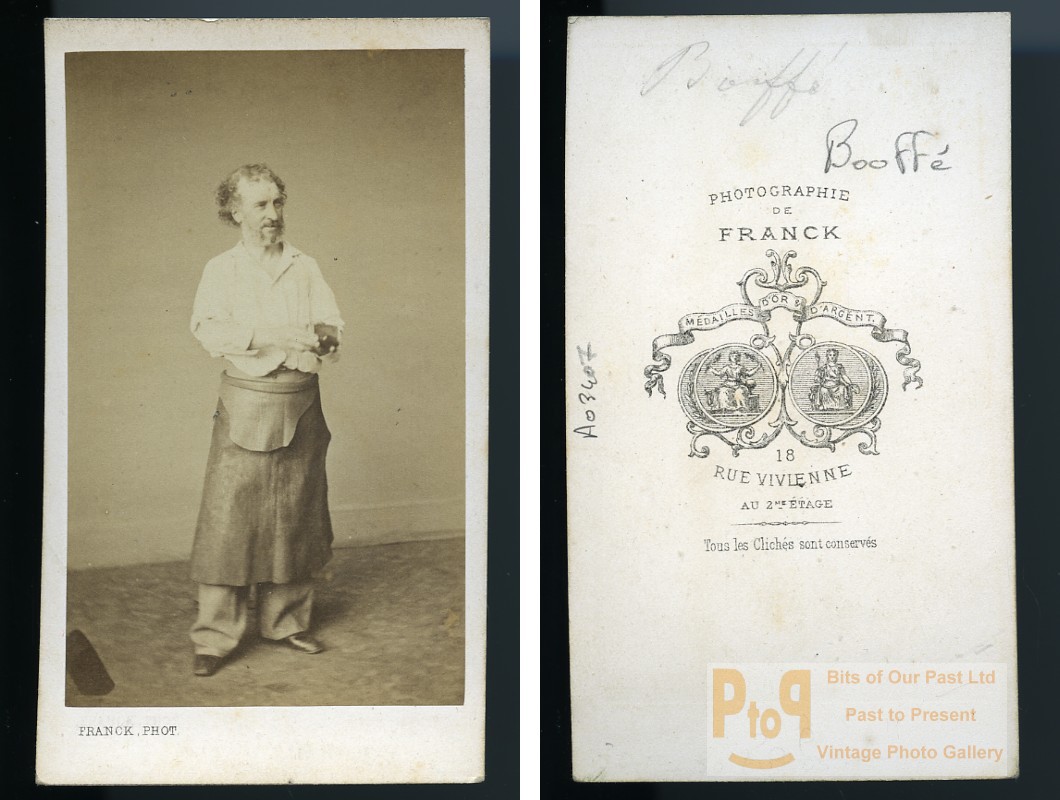 FRANCK, PHOT.
Bouffé
Booffé
PHOTOGRAPHIE
DE
FRANCK
MÉDAILLES D'OR & D'ARGENT.
18
RUE VIVIENNE
AU 2ME ÉTAGE
Tous les Clichés sont conservés
A03407
PtoP
Bits of Our Past Ltd
Past to Present
Vintage Photo Gallery